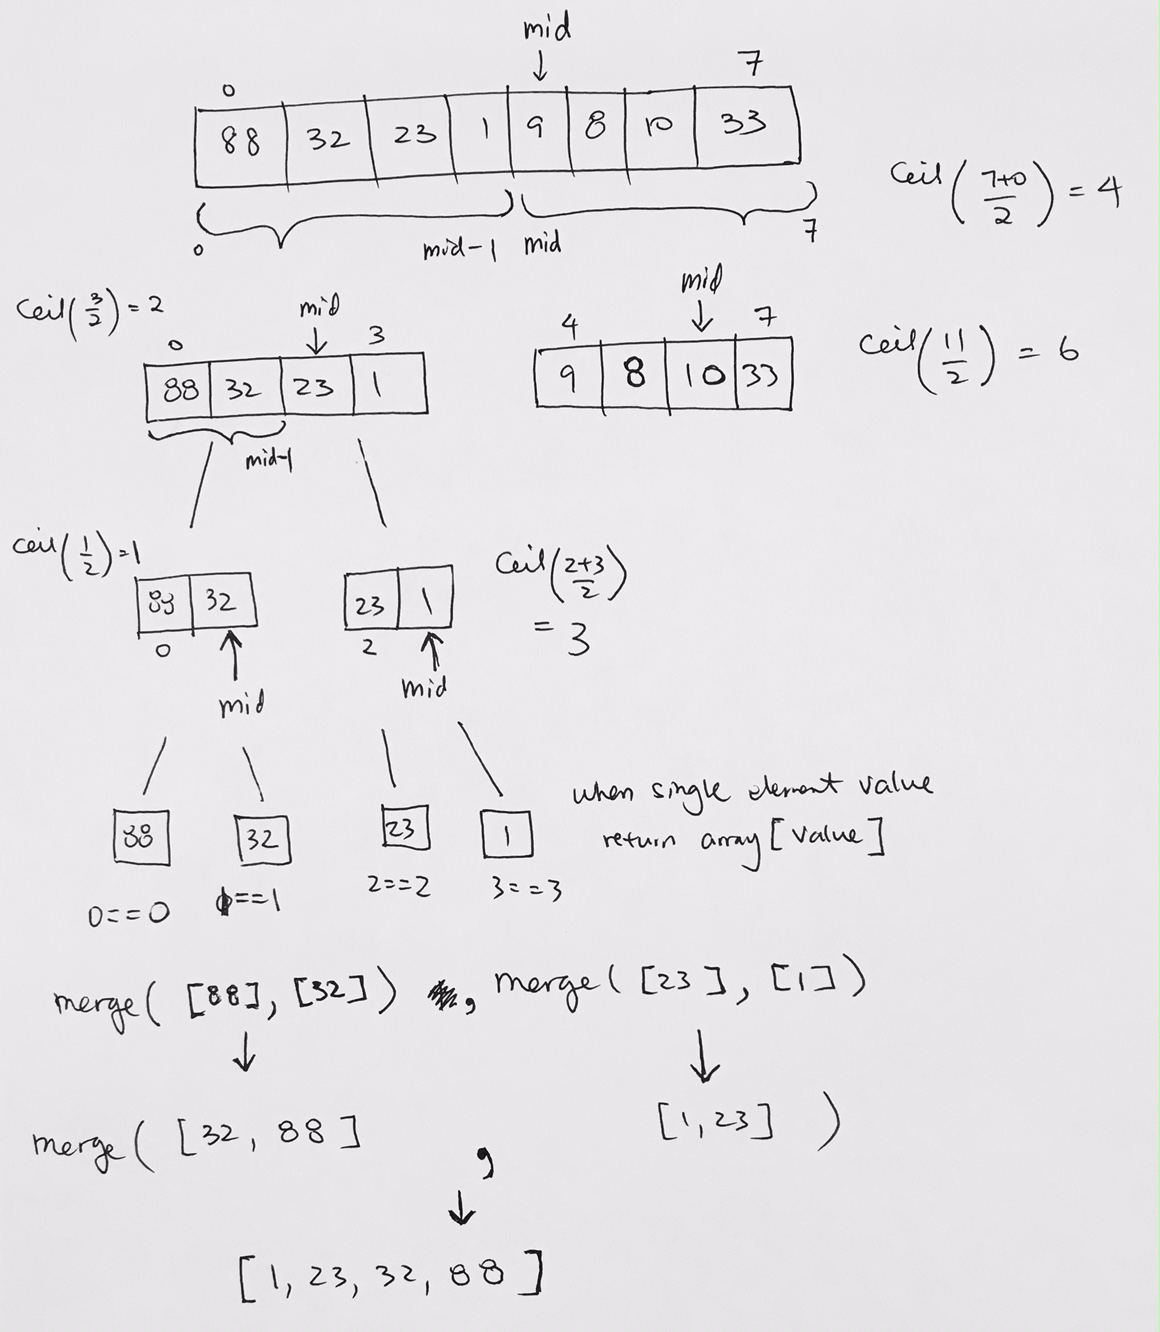 mid
↓
0 7
88 32 23 1 9 8 10 33
ceil(7+0/2) = 4
0 mid-1 mid 7
ceil(3/2) = 2
mid
↓
0 3
88 32 23 1
mid-1
mid
↓
4 7
9 8 10 33
ceil(11/2) = 6
ceil(1/2) = 1
88 32
0 ↑
mid
23 1
2 ↑
mid
ceil(2+3/2)
= 3
88 32 23 1
0==0 1==1 2==2 3==3
when single element value
return array[value]
merge([88], [32]) , merge([23], [1])
↓ ↓
merge([32, 88] , [1, 23] )
↓
[1, 23, 32, 88]